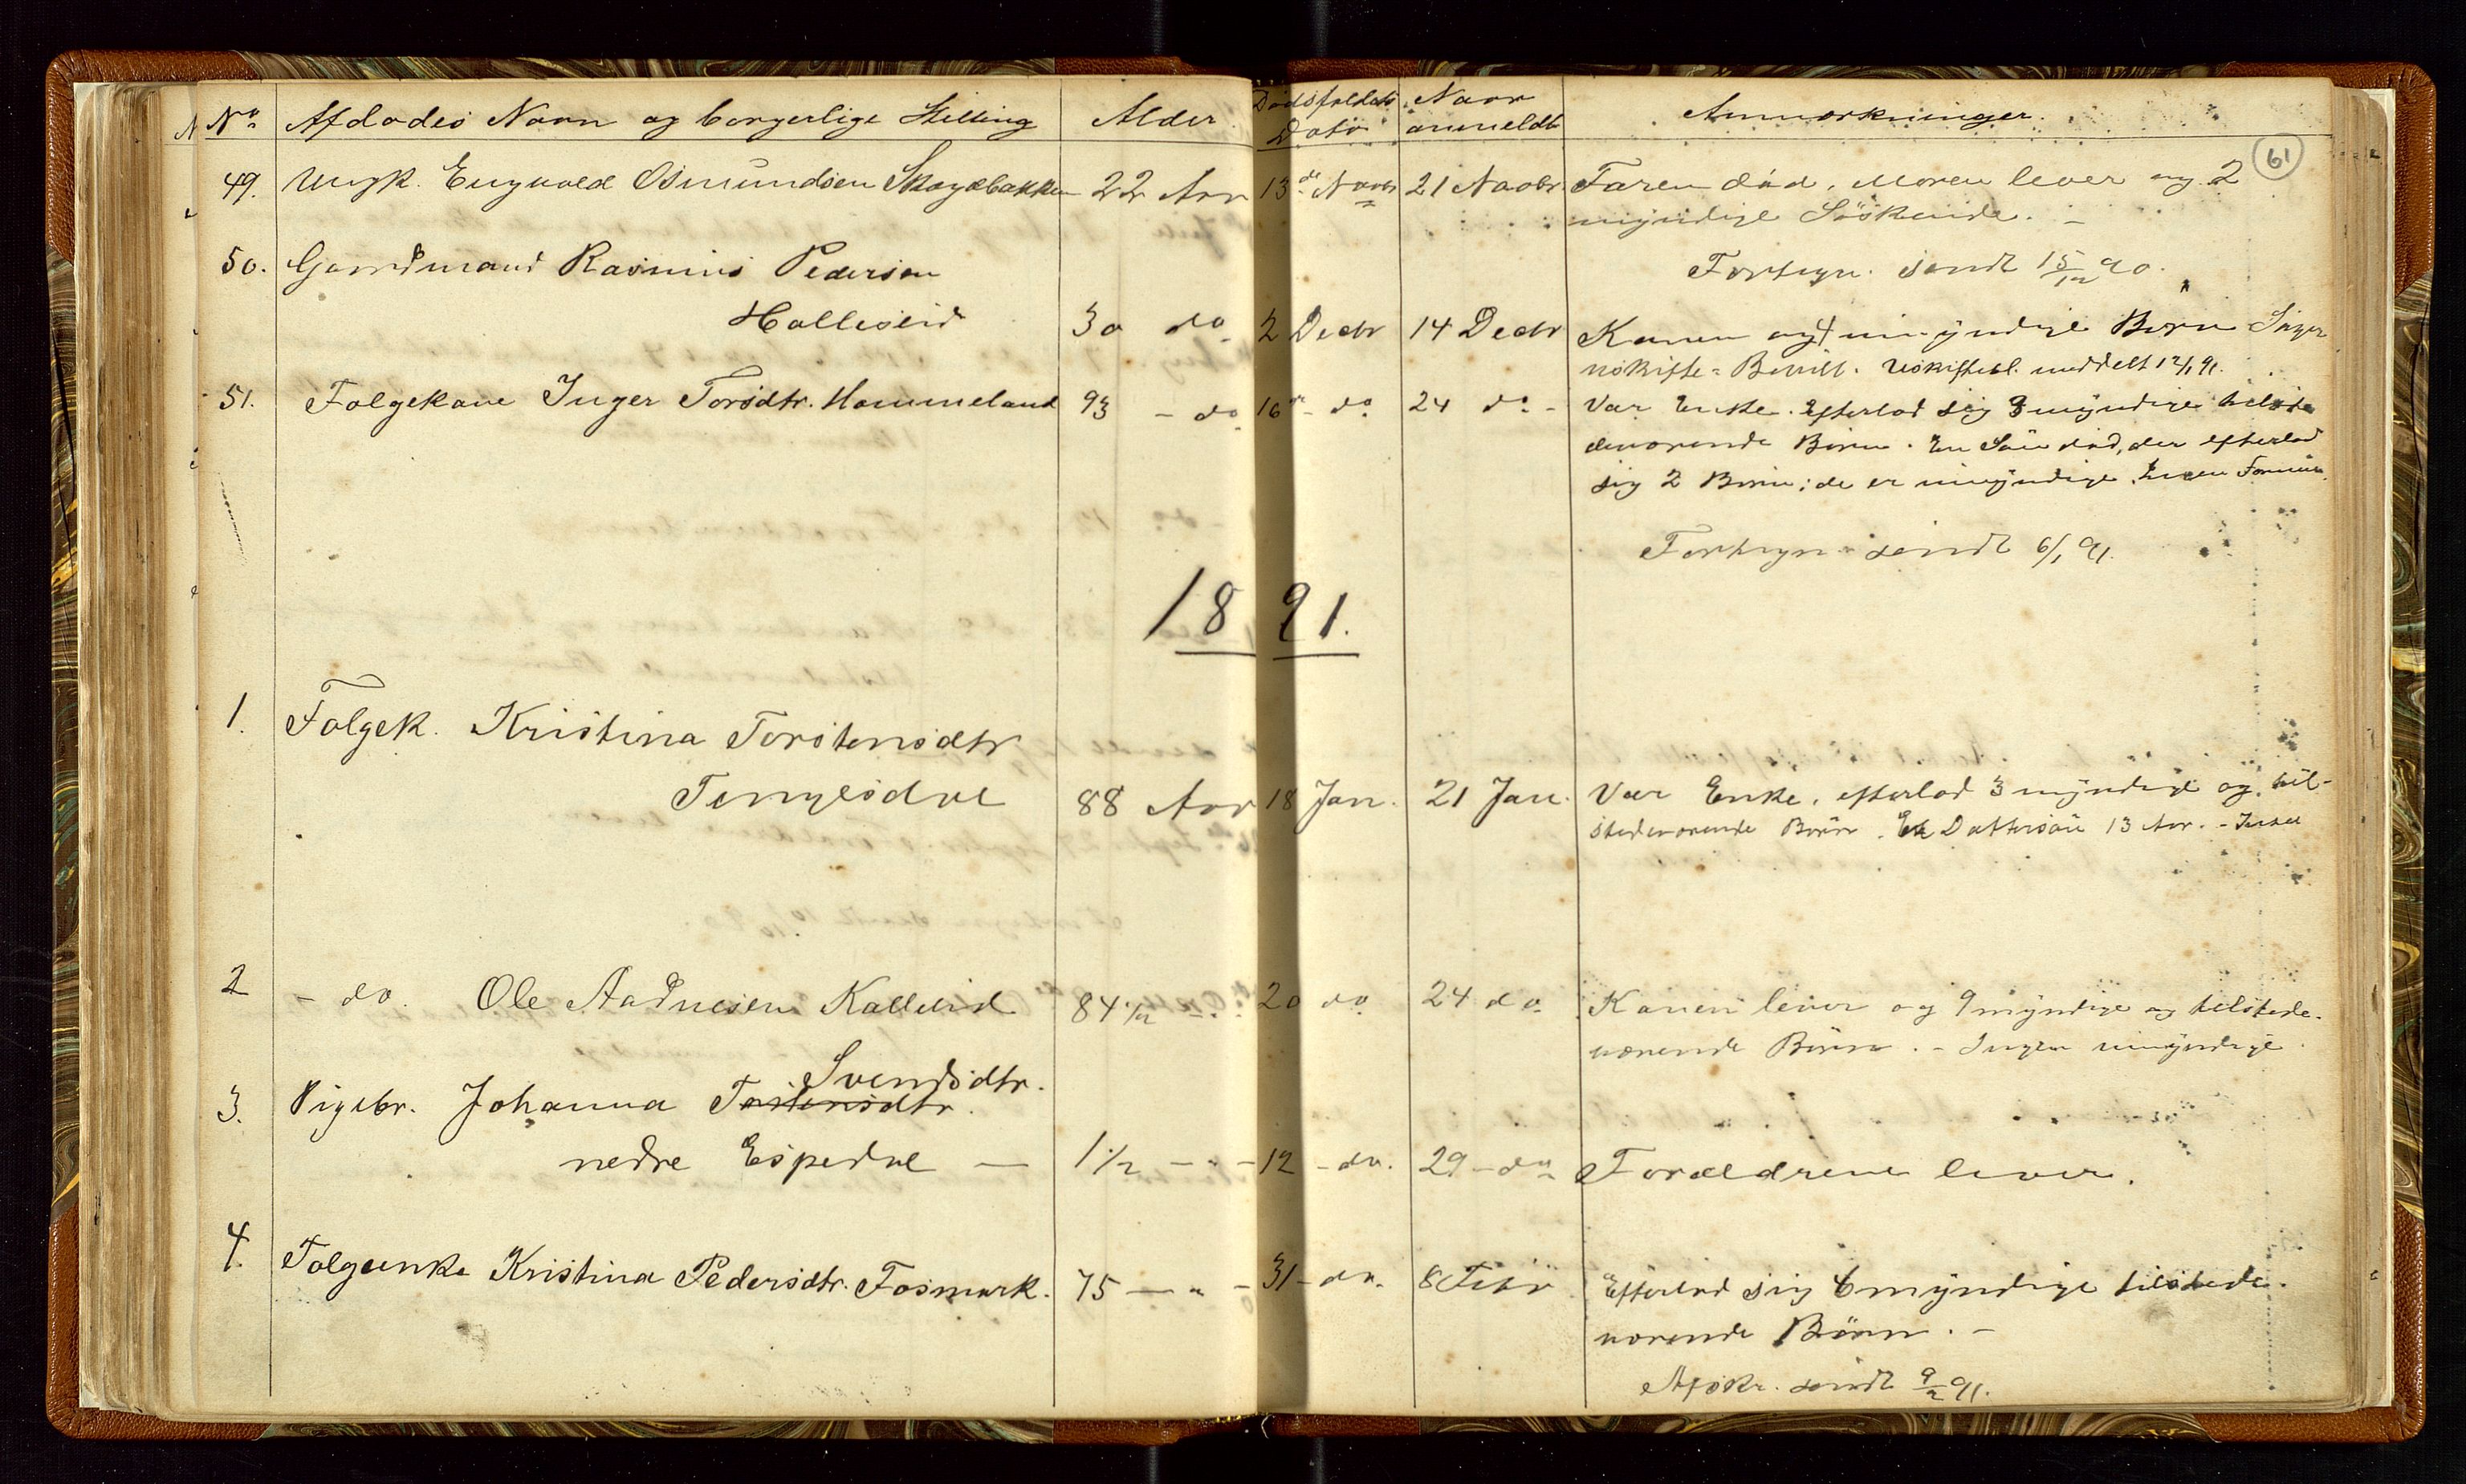 No. Afdødes Navn og borgerlige Stilling Alder Dødsfaldets Dato Naar anmeldt Anmærkninger.
61
49. Ungk. Engvald Osmundsen Skogebakken 22 Aar 13de Novbr 21 Novbr. Faren død, Moren lever og 2
myndige Söskende. –
50. Gaardmand Rasmus Pedersen
Fortegn. sendt 15/12 90.
Halleslid 30 do. 2 Decbr 14 Decbr Konen og 4 umyndige Børn
uskifte-Bevill. Uskiftebl. meddelt 12/1 91.
51. Folgekone Inger Torsdtr. Hommeland 93 – do. 16de do. 24 do. – Var Enke. Efterlod sig 3 myndige tilste
deværende Børn. En Sön död, der efterlod
sig 2 Børn; de er umyndige. Ingen Formue.
Fortegn. sendt 6/1 91.
1891.
1. Folgek. Kristina Torstensdtr
Tengesdal 88 Aar 18 Jan. 21 Jan. Var Enke, efterlod 3 myndige og til-
stedeværende Börn. En Dattersön 13 Aar. –
2 – do. Ole Aadnesen Kallelid 84 1/2 – 20 do. 24 do. Konen lever og 9 myndige og tilstede-
værende Börn. – Ingen umyndige.
Svendsdtr.
3. Pigebr. Johanna Torstensdtr.
nedre Espedal – 1 1/2 – „ – 12 – do. 29 – do. Forældrene lever.
4. Folgeenke Kristina Pedersdtr. Fosmark. 75 – „ – 31 – do. 8 Febr Efterlod sig 6 myndige tilstede-
værende Börn. –
Afskr. sendt 9/2 91.